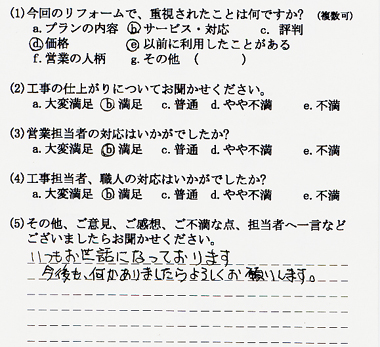 (1)今回のリフォームで、重視されたことは何ですか? (複数可)
a.プランの内容 ⓑサービス・対応 c. 評判
ⓓ価格 ⓔ以前に利用したことがある
f.営業の人柄 g.その他 ( )
(2)工事の仕上がりについてお聞かせください。
a.大変満足 ⓑ満足 c.普通 d.やや不満 e.不満
(3)営業担当者の対応はいかがでしたか?
a.大変満足 ⓑ満足 c.普通 d.やや不満 e.不満
(4)工事担当者、職人の対応はいかがでしたか?
a.大変満足 ⓑ満足 c.普通 d.やや不満 e.不満
(5)その他、ご意見、ご感想、ご不満な点、担当者へ一言など
ございましたらお聞かせください。
いつもお世話になっております
今後も、何かありましたらよろしくお願いします。